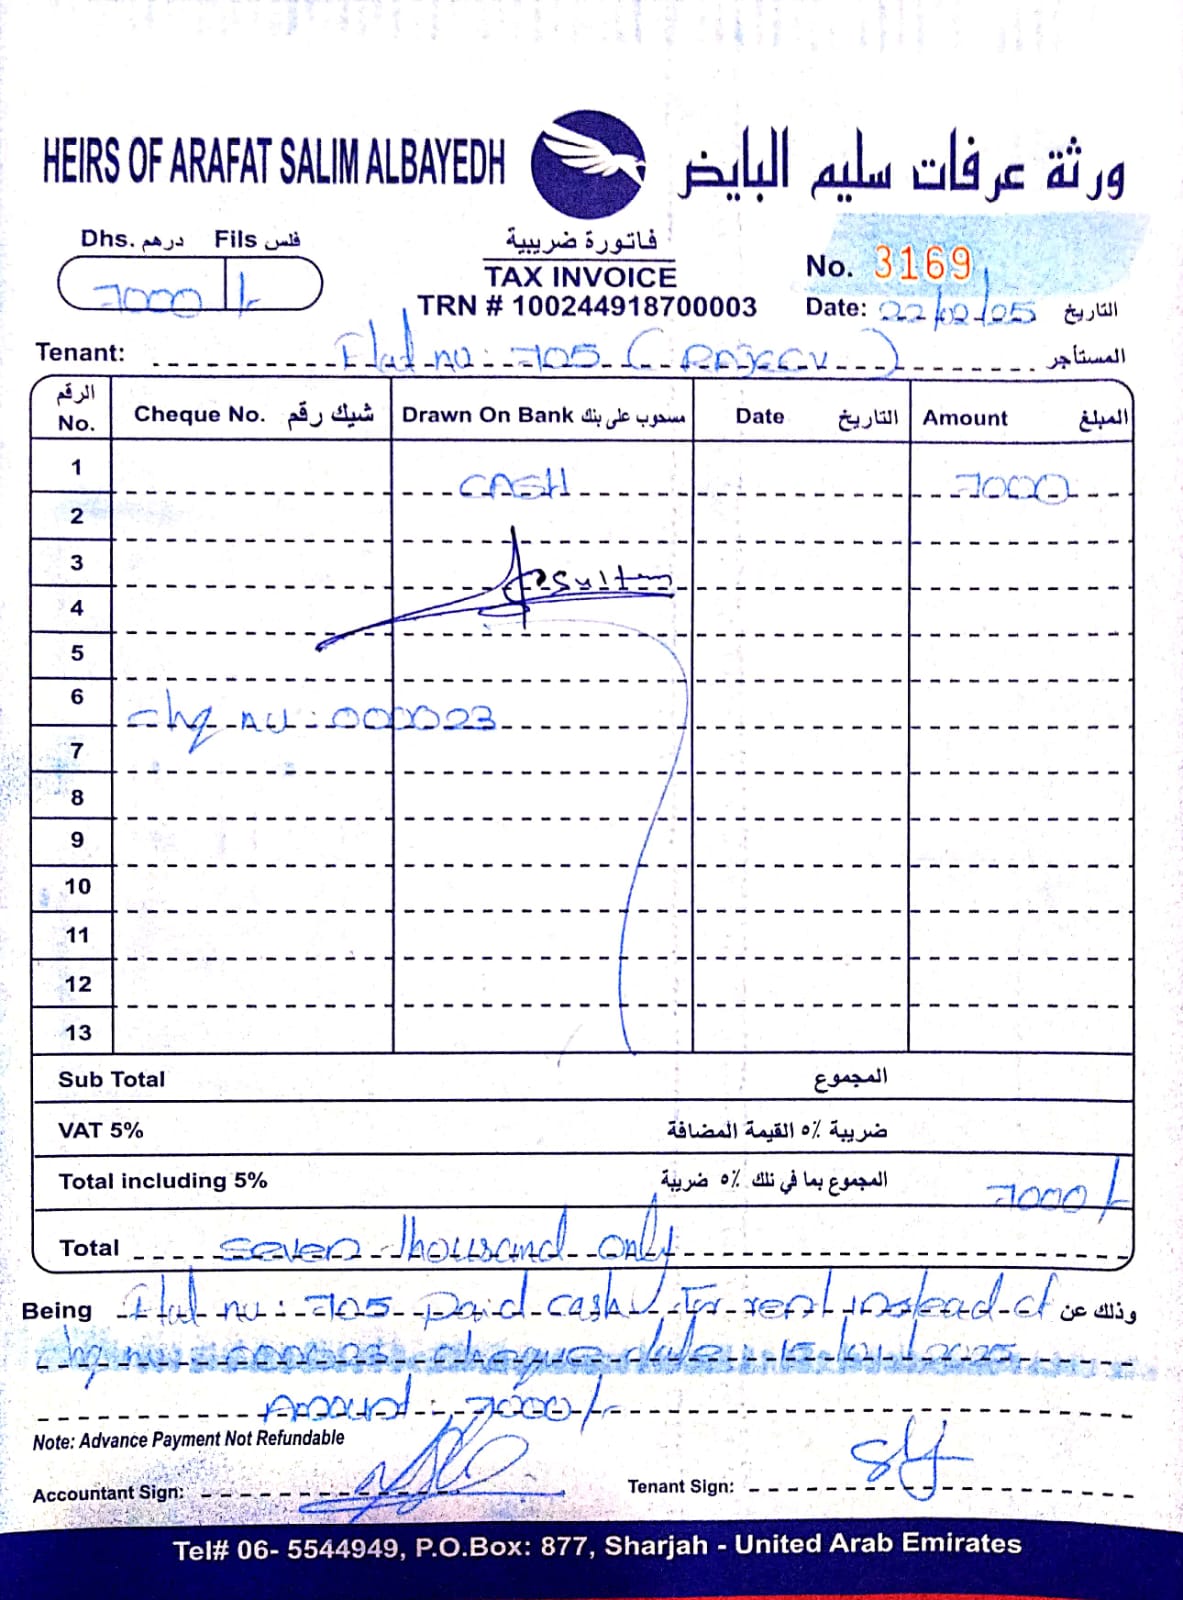 HEIRS OF ARAFAT SALIM ALBAYEDH
ورثة عرفات سليم البايض
Dhs. درهم Fils فلس
7000 /-
فاتورة ضريبية
TAX INVOICE
TRN # 100244918700003
No. 3169
Date: 22/02/25 التاريخ
Tenant: Flat no: 705 (Rajeev) المستأجر
الرقم No. Cheque No. شيك رقم Drawn On Bank مسحوب على بنك Date التاريخ Amount المبلغ
1 CASH 7000
2
3 Sultan
4
5
6 chq no: 000023
7
8
9
10
11
12
13
Sub Total المجموع
VAT 5% ضريبة ٥٪ القيمة المضافة
Total including 5% المجموع بما في ذلك ٥٪ ضريبة 7000/-
Total Seven thousand only
Being Flat no: 705 paid cash for rent instead of وذلك عن
chq no: 000023 cheque date 2025
Amount: 7000/-
Note: Advance Payment Not Refundable
Accountant Sign: Tenant Sign:
Tel# 06- 5544949, P.O.Box: 877, Sharjah - United Arab Emirates